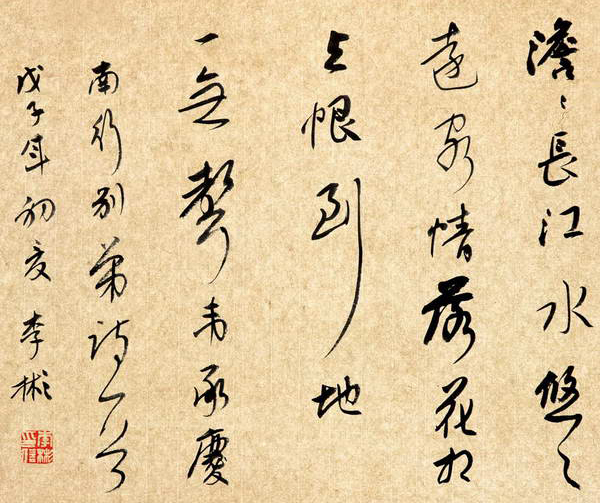 澹〻長江水悠〻
遠客情落花相
与恨到地
一無聲韋承慶
南行別弟詩一首
戊子年初夏李彬